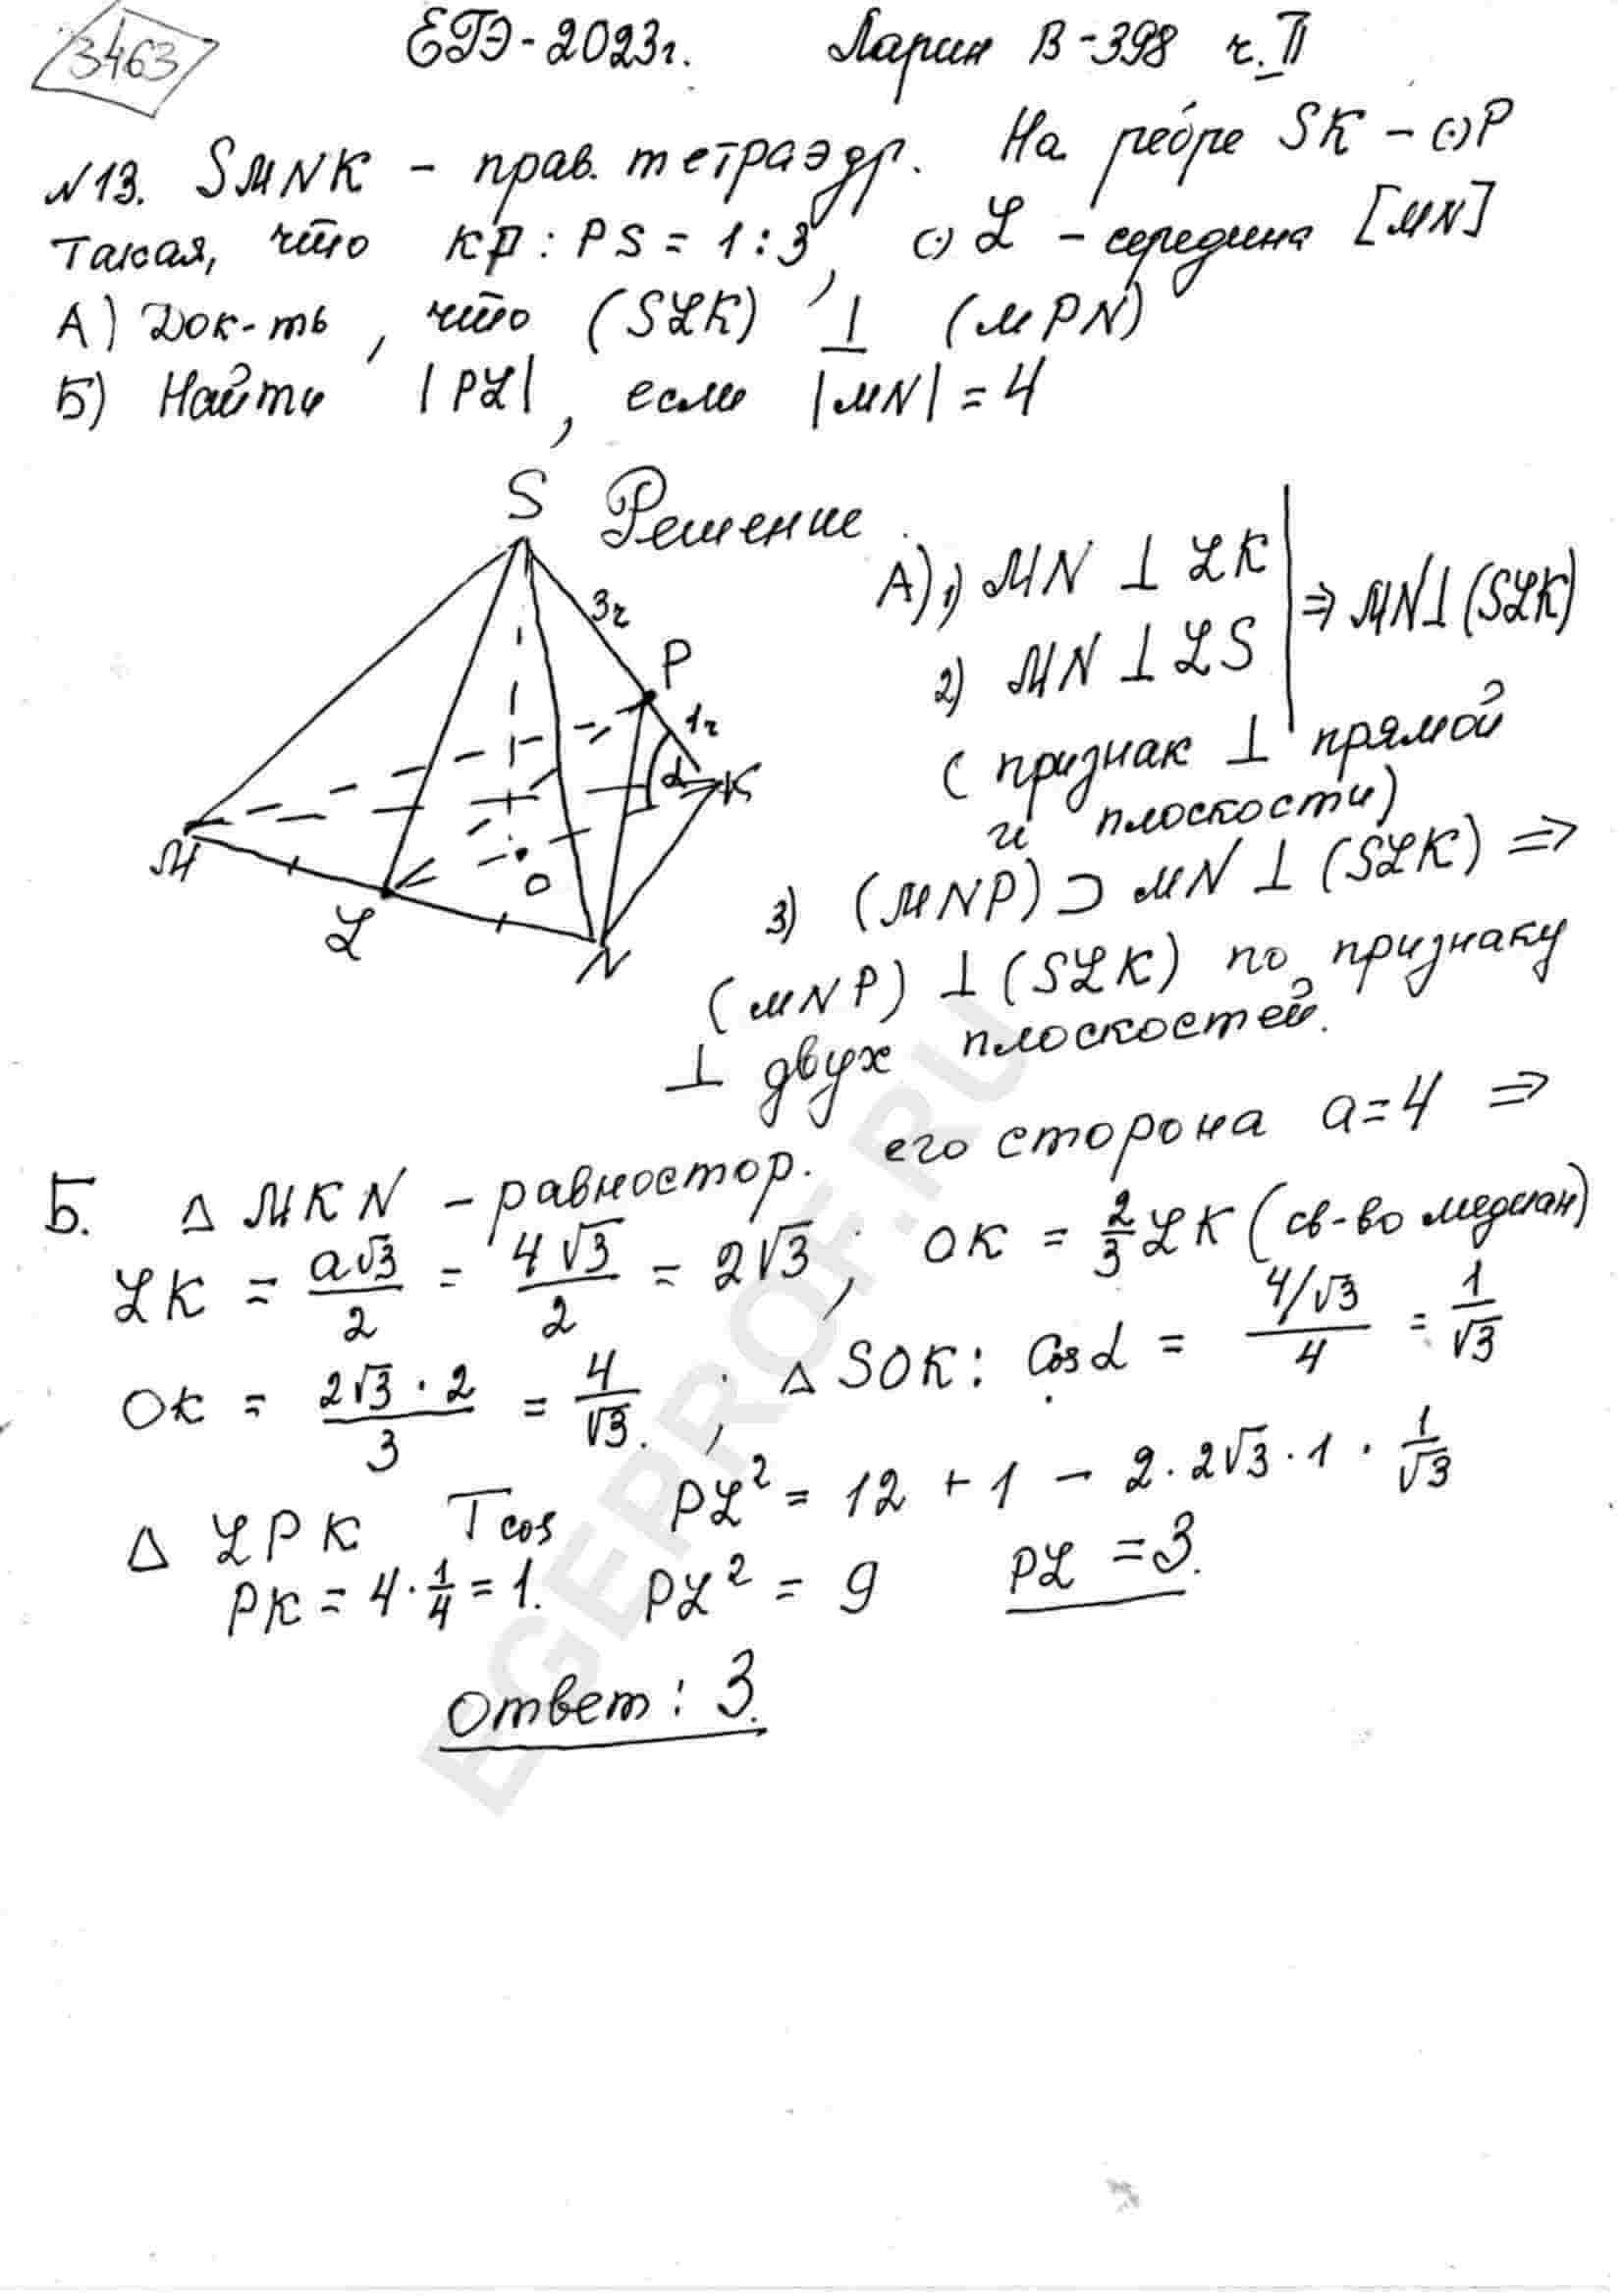 3463
ЕГЭ-2023г. Ларин В-398 ч.II
№13. SMNK - прав. тетраэдр. На ребре SK - (·)P
такая, что KP : PS = 1 : 3, (·) L - середина [MN]
А) Док-ть, что (SLK) ⊥ (MPN)
Б) Найти |PL|, если |MN| = 4
Решение
S
3x
P
1x
α
K
M
O
L
N
А) 1) MN ⊥ LK
2) MN ⊥ LS
⇒ MN ⊥ (SLK)
(признак ⊥ прямой
и плоскости)
3) (MNP) ⊃ MN ⊥ (SLK) ⇒
(MNP) ⊥ (SLK) по признаку
⊥ двух плоскостей.
Б. Δ MKN - равностор. его сторона a=4 ⇒
LK = a√3/2 = 4√3/2 = 2√3 ; OK = 2/3 LK (св-во медиан)
OK = 2√3·2/3 = 4/√3. ; Δ SOK: Cos α = 4/√3/4 = 1/√3
Δ LPK Tcos PL² = 12 + 1 - 2·2√3·1·1/√3
PK = 4·1/4 = 1. PL² = 9 PL = 3.
Ответ: 3.
EGEPROF.RU